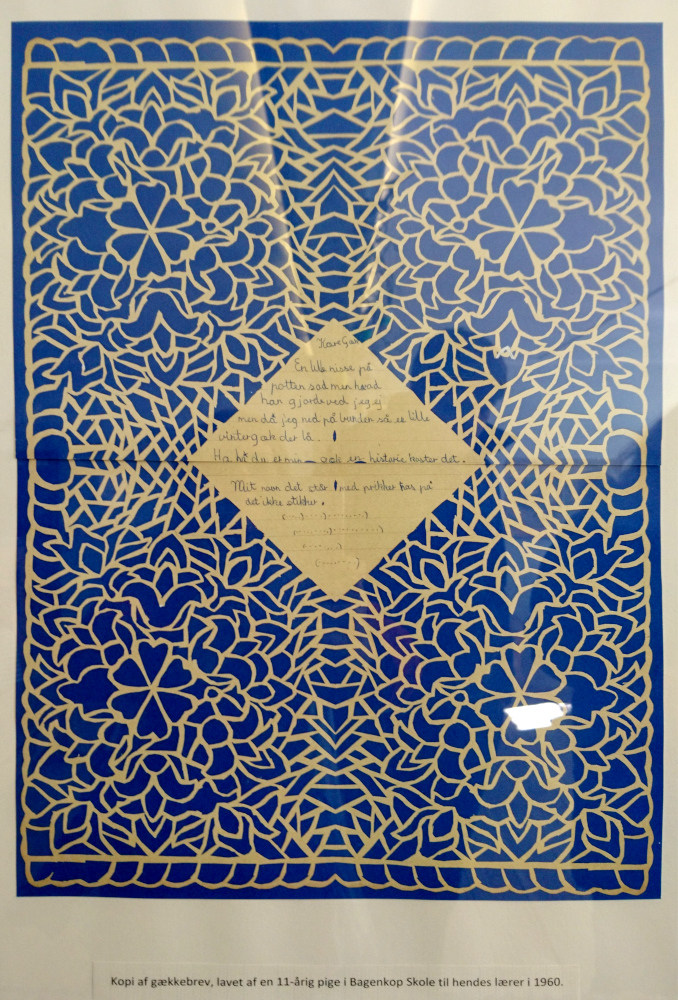 Kære
En lille nisse på
potten sad men hvad
han gjorde ved jeg ej
men då jeg ned på bunden så en lille
vintergæk der lå.
Ha hi du er min gæk en historie koster det.
Mit navn det står med prikker kas på
det ikke stikker.
(....)......)..........)
(......)......)........)
(......)
(........)
Kopi af gækkebrev, lavet af en 11-årig pige i Bagenkop Skole til hendes lærer i 1960.